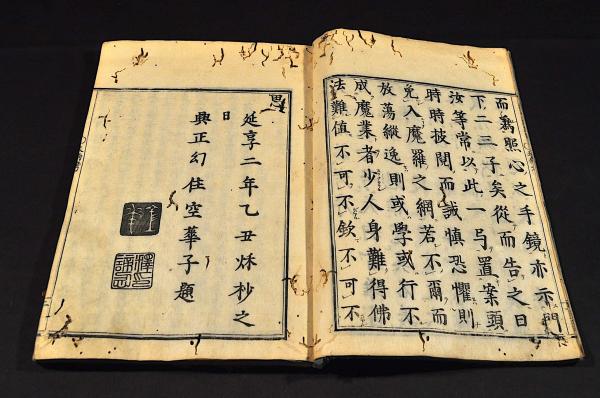 而爲照心之手鏡亦示門
下二三子矣從而告之曰
汝等常以此一置案頭
時時披閱而誡慎恐懼則
免入魔羅之網若不爾而
放蕩縱逸則或學或行不
成魔業者少人身難得佛
法難值不可不欽不可不
思
延享二年乙丑秌杪之
日
典正幻住空華子題